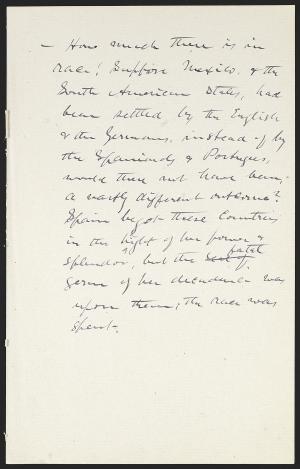 — How much there is in
race! Suppose Mexico & the
South American States, had
been settled by the English
& the Germans, instead of by
the Spaniards & Portugese,
would there not have been
a vastly different outcome?
Spain begot these Countries
in the hight of her power &
splendor, but the fatal
germ of her decadence was
upon them; the race was
spent.